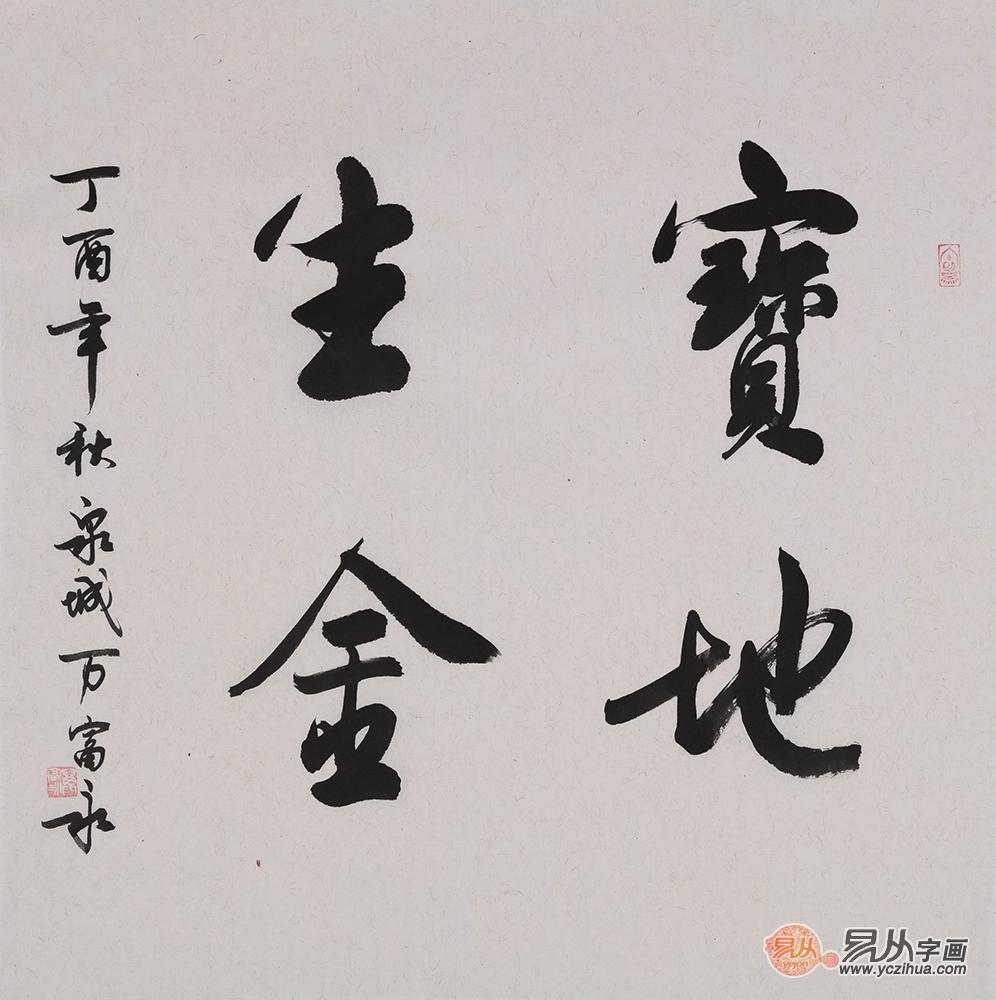 寶地
生金
丁酉年秋泉城万富永
易从
yicjon
易从字画
www.yczihua.com